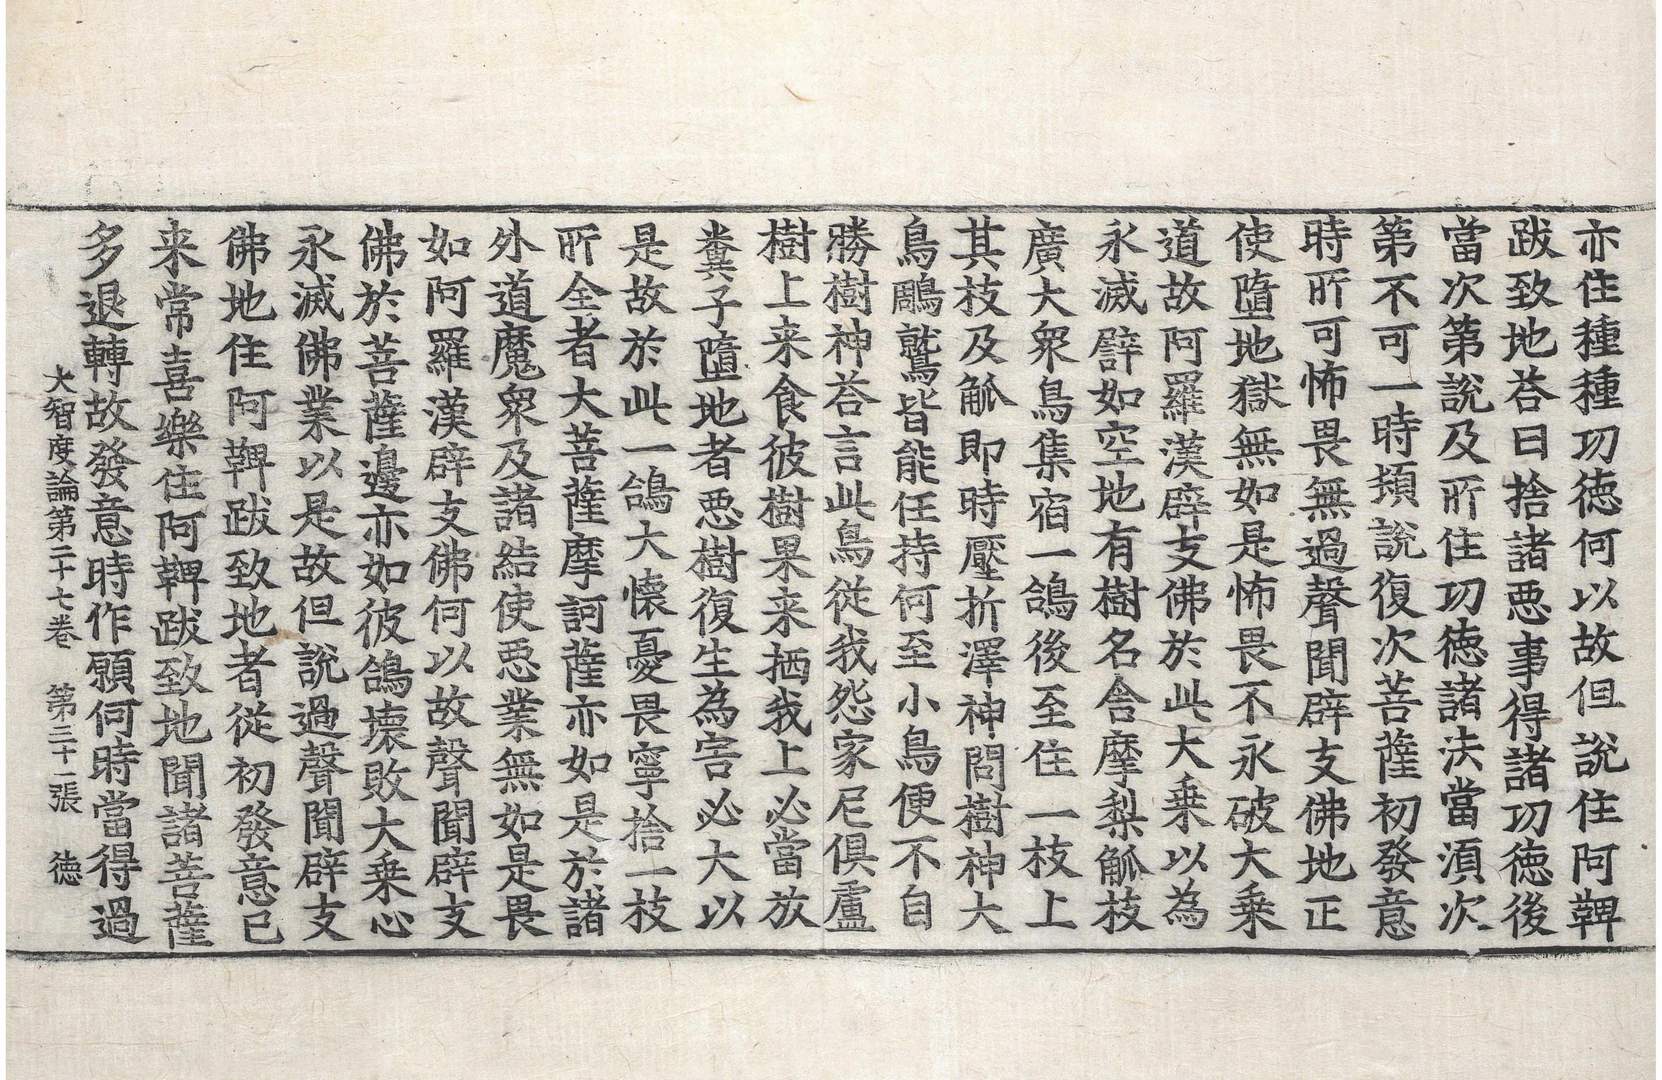 亦住種種功德何以故但說住阿鞞
跋致地荅曰捨諸惡事得諸功德後
當次第說及所住功德諸法當湏次
第不可一時頓說復次菩薩初發意
時所可怖畏無過聲聞辟支佛地正
使墮地獄無如是怖畏不永破大乗
道故阿羅漢辟支佛於此大乗以為
永滅譬如空地有樹名舎摩梨觚枝
廣大衆鳥集宿一鴿後至住一枝上
其枝及觚即時壓折澤神問樹神大
鳥鵰鷲皆能任持何至小鳥便不自
勝樹神荅言此鳥從我怨家尼俱盧
樹上来食彼樹果来栖我上必當放
糞子墮地者惡樹復生為害必大以
是故於此一鴿大懷憂畏寧捨一枝
所全者大菩薩摩訶薩亦如是於諸
外道魔衆及諸結使惡業無如是畏
如阿羅漢辟支佛何以故聲聞辟支
佛於菩薩邊亦如彼鴿壊敗大乗心
永滅佛業以是故但說過聲聞辟支
佛地住阿鞞跋致地者從初發意已
来常喜樂住阿鞞跋致地聞諸菩薩
多退轉故發意時作願何時當得過
大智度論第二十七卷 第三十一張 德